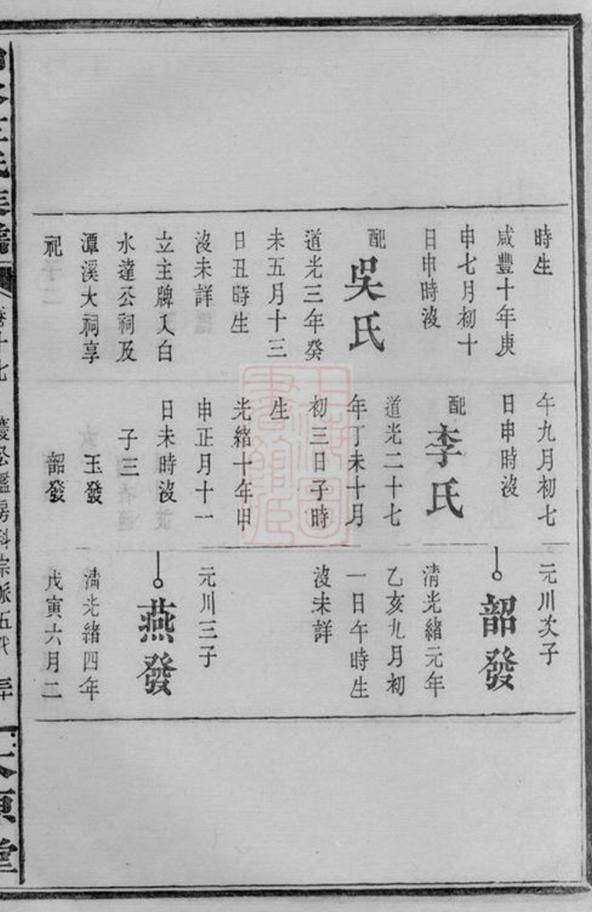 時生
咸豐十年庚
申七月初十
日申時沒
配
吳氏
道光三年癸
未五月十三
日丑時生
沒未詳
立主牌入白
水達公祠及
潭溪大祠享
祀
午九月初七
日申時沒
配
李氏
道光二十七
年丁未十月
初三日子時
生
光緒十年甲
申正月十一
日未時沒
子三
玉發
韶發
元川次子
韶發
清光緒元年
乙亥九月初
一日午時生
沒未詳
元川三子
燕發
清光緒四年
戊寅六月二